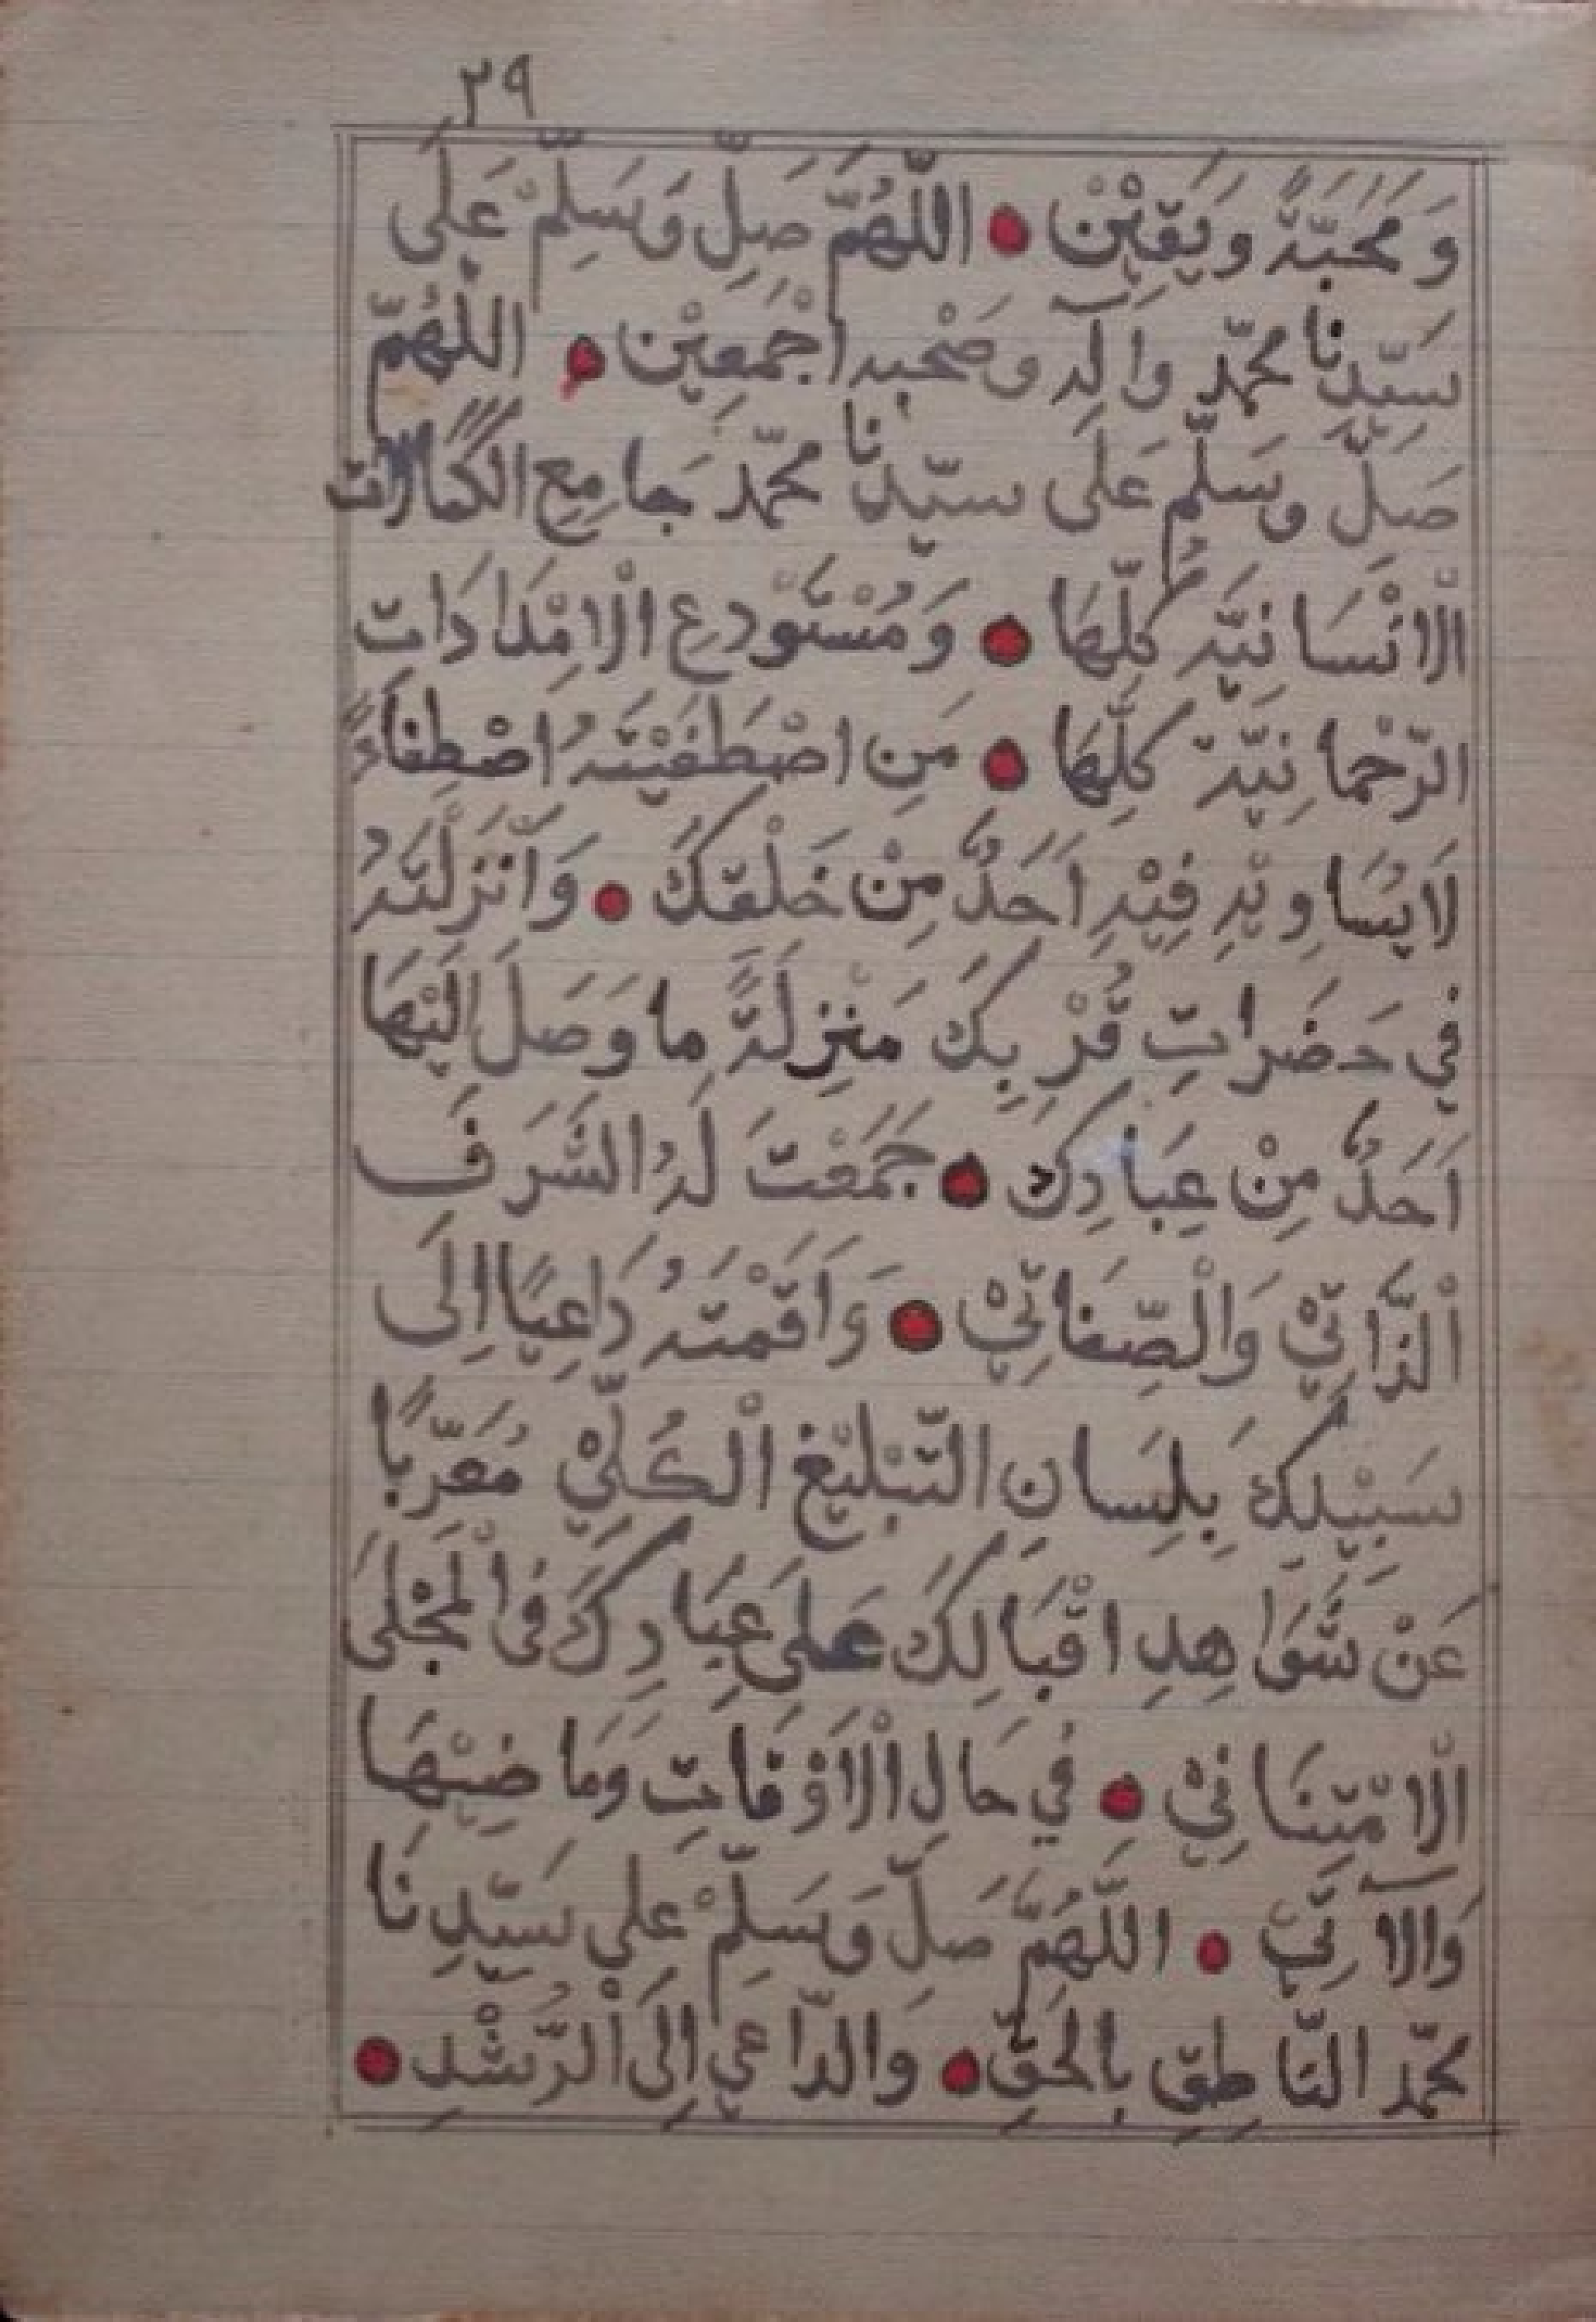 ٢٩
وَ مَحَبَّةً وَيَقِيْنْ ● اللّهُمَّ صَلِّ وَسَلِّمْ عَلَى
سَيِّدِنَا محمّد وآلِه وصَحْبِه اجْمَعِيْن ● اللّهُمّ
صَلِّ وسَلِّم عَلَى سيّدِنا محمّد جَامِعِ الكَمَالات
الْانْسَانِيَّه كُلِّهَا ● وَمُسْتَوْدِعِ الْامْدَادَاتِ
الرّحْمانِيَّة كلِّهَا ● مَنِ اصْطَفَيْتَهُ اصْطِفَاءً
لَا يُسَاوِيْهِ فِيْهِ اَحَدٌ مِنْ خَلْقِكَ ● وَاَنْزَلْتَهُ
فِي حَضَراتِ قُرْبِكَ مَنْزِلَةً ما وَصَلَ اِلَيْهَا
اَحَدٌ مِنْ عِبَادِكَ ● جَمَعْتَ لَهُ الشَّرَفَ
اْلذَّاتِيْ وَالْصِّفَاتِيْ ● وَاَقَمْتَهُ دَاعِيًا اِلَى
سَبِيْلِكَ بِلِسَانِ التَّبْلِيْغِ الْكُلِّيْ مُعَرِّبًا
عَنْ شَوَاهِدِ اقْبَالِكَ عَلَى عِبَادِكَ فى الْمَجْلَى
الْامْتِنَانِيْ ● فِي حَالِ الْاَوْقَاتِ وَمَاضِيْهَا
وَالآتِيْ ● اللّهُمَّ صَلِّ وَسَلِّمْ على سَيّدِنَا
محمّد النّاطِقِ بالحَقِّ ● وَالدّاعِي اِلَى اْلرُّشْدِ ●